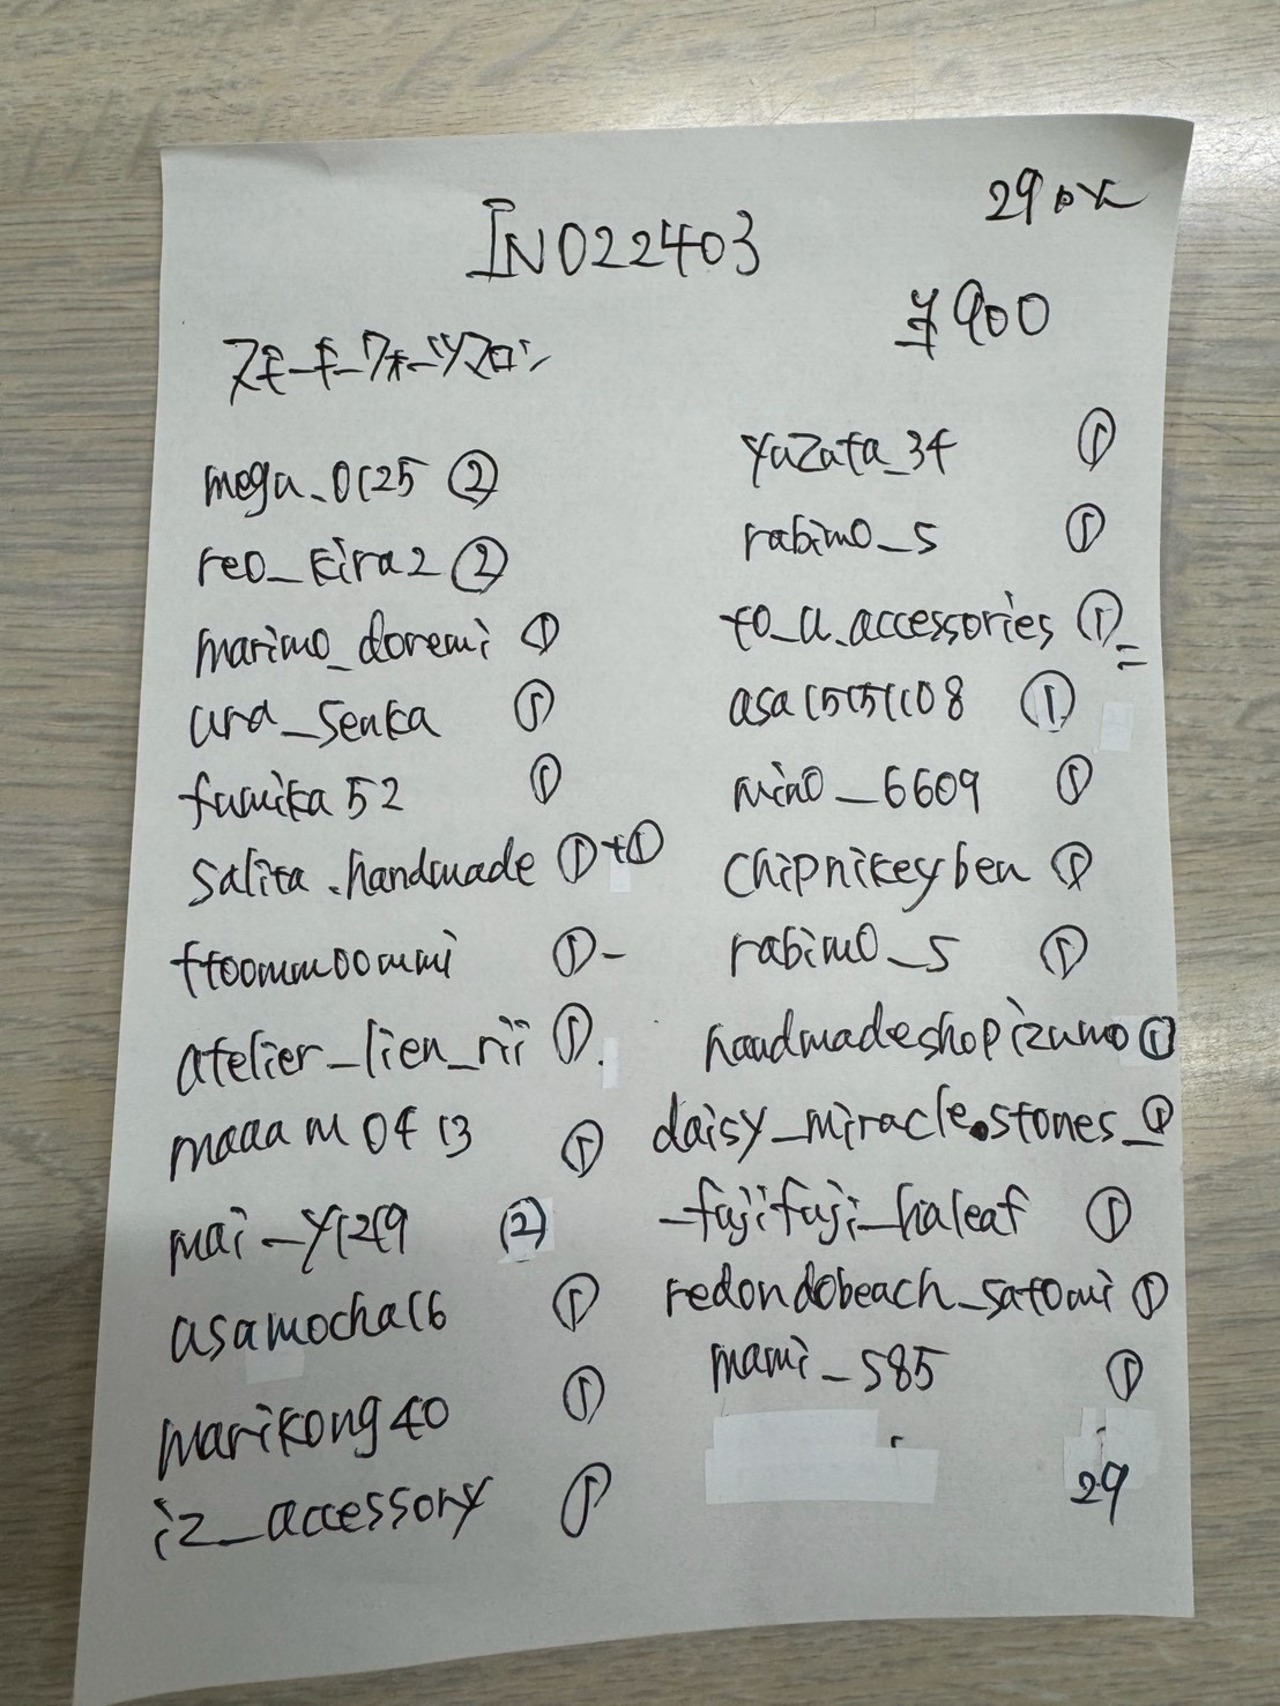 INO22403
¥900
スモーキークォーツマロン
mega_0125 ②
reo_kira2 ②
marimo_doremi ①
ura_senka ①
fumika52 ①
salita.handmade ①+①
ttoommoommi ①-
atelier_lien_rii ①.
maaam0413 ①
mai_y1219 ②
asamocha16 ①
marikong40 ①
iz_accessory ①
yuzata_34 ①
rabimo_s ①
to_u.accessories ①=
asa15151108 ①
nino_6609 ①
chipnikeyben ①
rabimo_s ①
handmadeshopizumo ①
daisy_miracle.stones_ ①
_fujifuji_haleaf ①
redondobeach_satomi ①
mami_585 ①
29